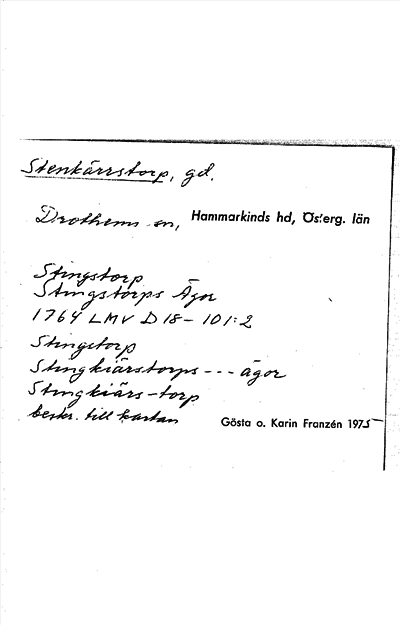 Stenkärrstorp, gd.
Drothems sn, Hammarkinds hd, Österg. län
Stingstorp
Stingstorps Ägor
1764 LMV D 18 - 101:2
Stingstorp
Stingkiärstorps --- ägor
Stingkiärs-torp
beskr. till kartan
Gösta o. Karin Franzén 1975